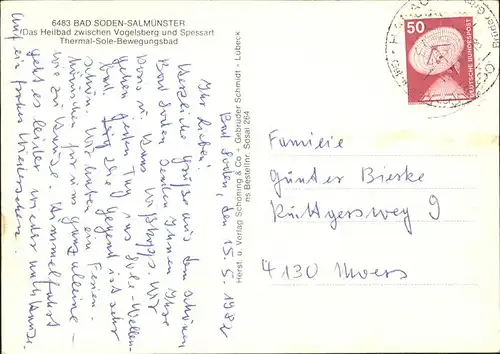 6483 BAD SODEN-SALMÜNSTER
Das Heilbad zwischen Vogelsberg und Spessart
Thermal-Sole-Bewegungsbad
Bad Soden, den 15.5.1982
Ihr Lieben!
Herzliche Grüße aus dem schönen
Bad Soden senden Ihnen Ihre
u. Hans
Wir
gehen jeden Tag ins Sole-Wellen-
bad. Die Gegend ist sehr
schön. Wir haben ein Ferien-
häuschen für uns ganz alleine -
wie zu Hause. Himmelfahrt
geht es leider wieder nach Hause.
Auf ein frohes Wiedersehen.
Herst. u. Verlag Schöning & Co · Gebrüder Schmidt - Lübeck
ns Bestellnr. Sosal 264
50
DEUTSCHE BUNDESPOST
HANAU
Familie
Günter Bierke
Rüttgersweg 9
4130 Moers